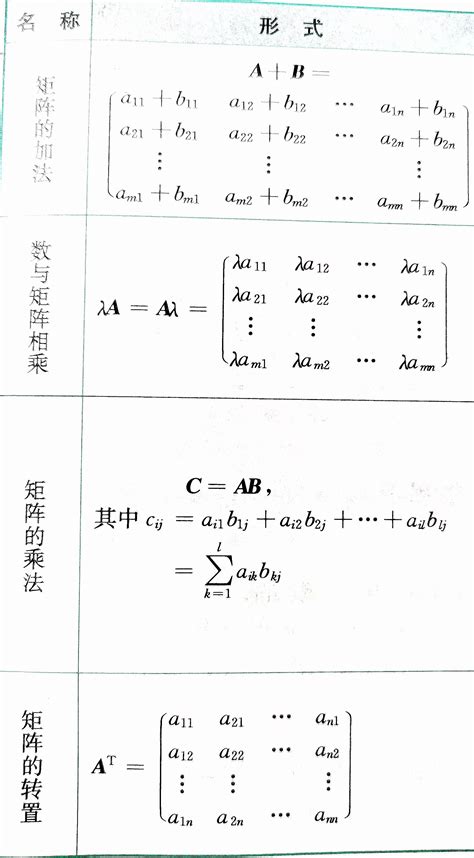 名 称 形 式
矩阵的加法
A + B =
a₁₁ + b₁₁ a₁₂ + b₁₂ ⋯ a₁ₙ + b₁ₙ
a₂₁ + b₂₁ a₂₂ + b₂₂ ⋯ a₂ₙ + b₂ₙ
⋮ ⋮ ⋮
aₘ₁ + bₘ₁ aₘ₂ + bₘ₂ ⋯ aₘₙ + bₘₙ
数与矩阵相乘
λa₁₁ λa₁₂ ⋯ λa₁ₙ
λa₂₁ λa₂₂ ⋯ λa₂ₙ
λA = Aλ =
⋮ ⋮ ⋮
λaₘ₁ λaₘ₂ ⋯ λaₘₙ
矩阵的乘法
C = AB,
其中 cᵢⱼ = aᵢ₁b₁ⱼ + aᵢ₂b₂ⱼ + ⋯ + aᵢₗbₗⱼ
= ∑ₖ₌₁ˡ aᵢₖbₖⱼ
矩阵的转置
a₁₁ a₂₁ ⋯ aₙ₁
a₁₂ a₂₂ ⋯ aₙ₂
Aᵀ =
⋮ ⋮ ⋮
a₁ₙ a₂ₙ ⋯ aₙₙ